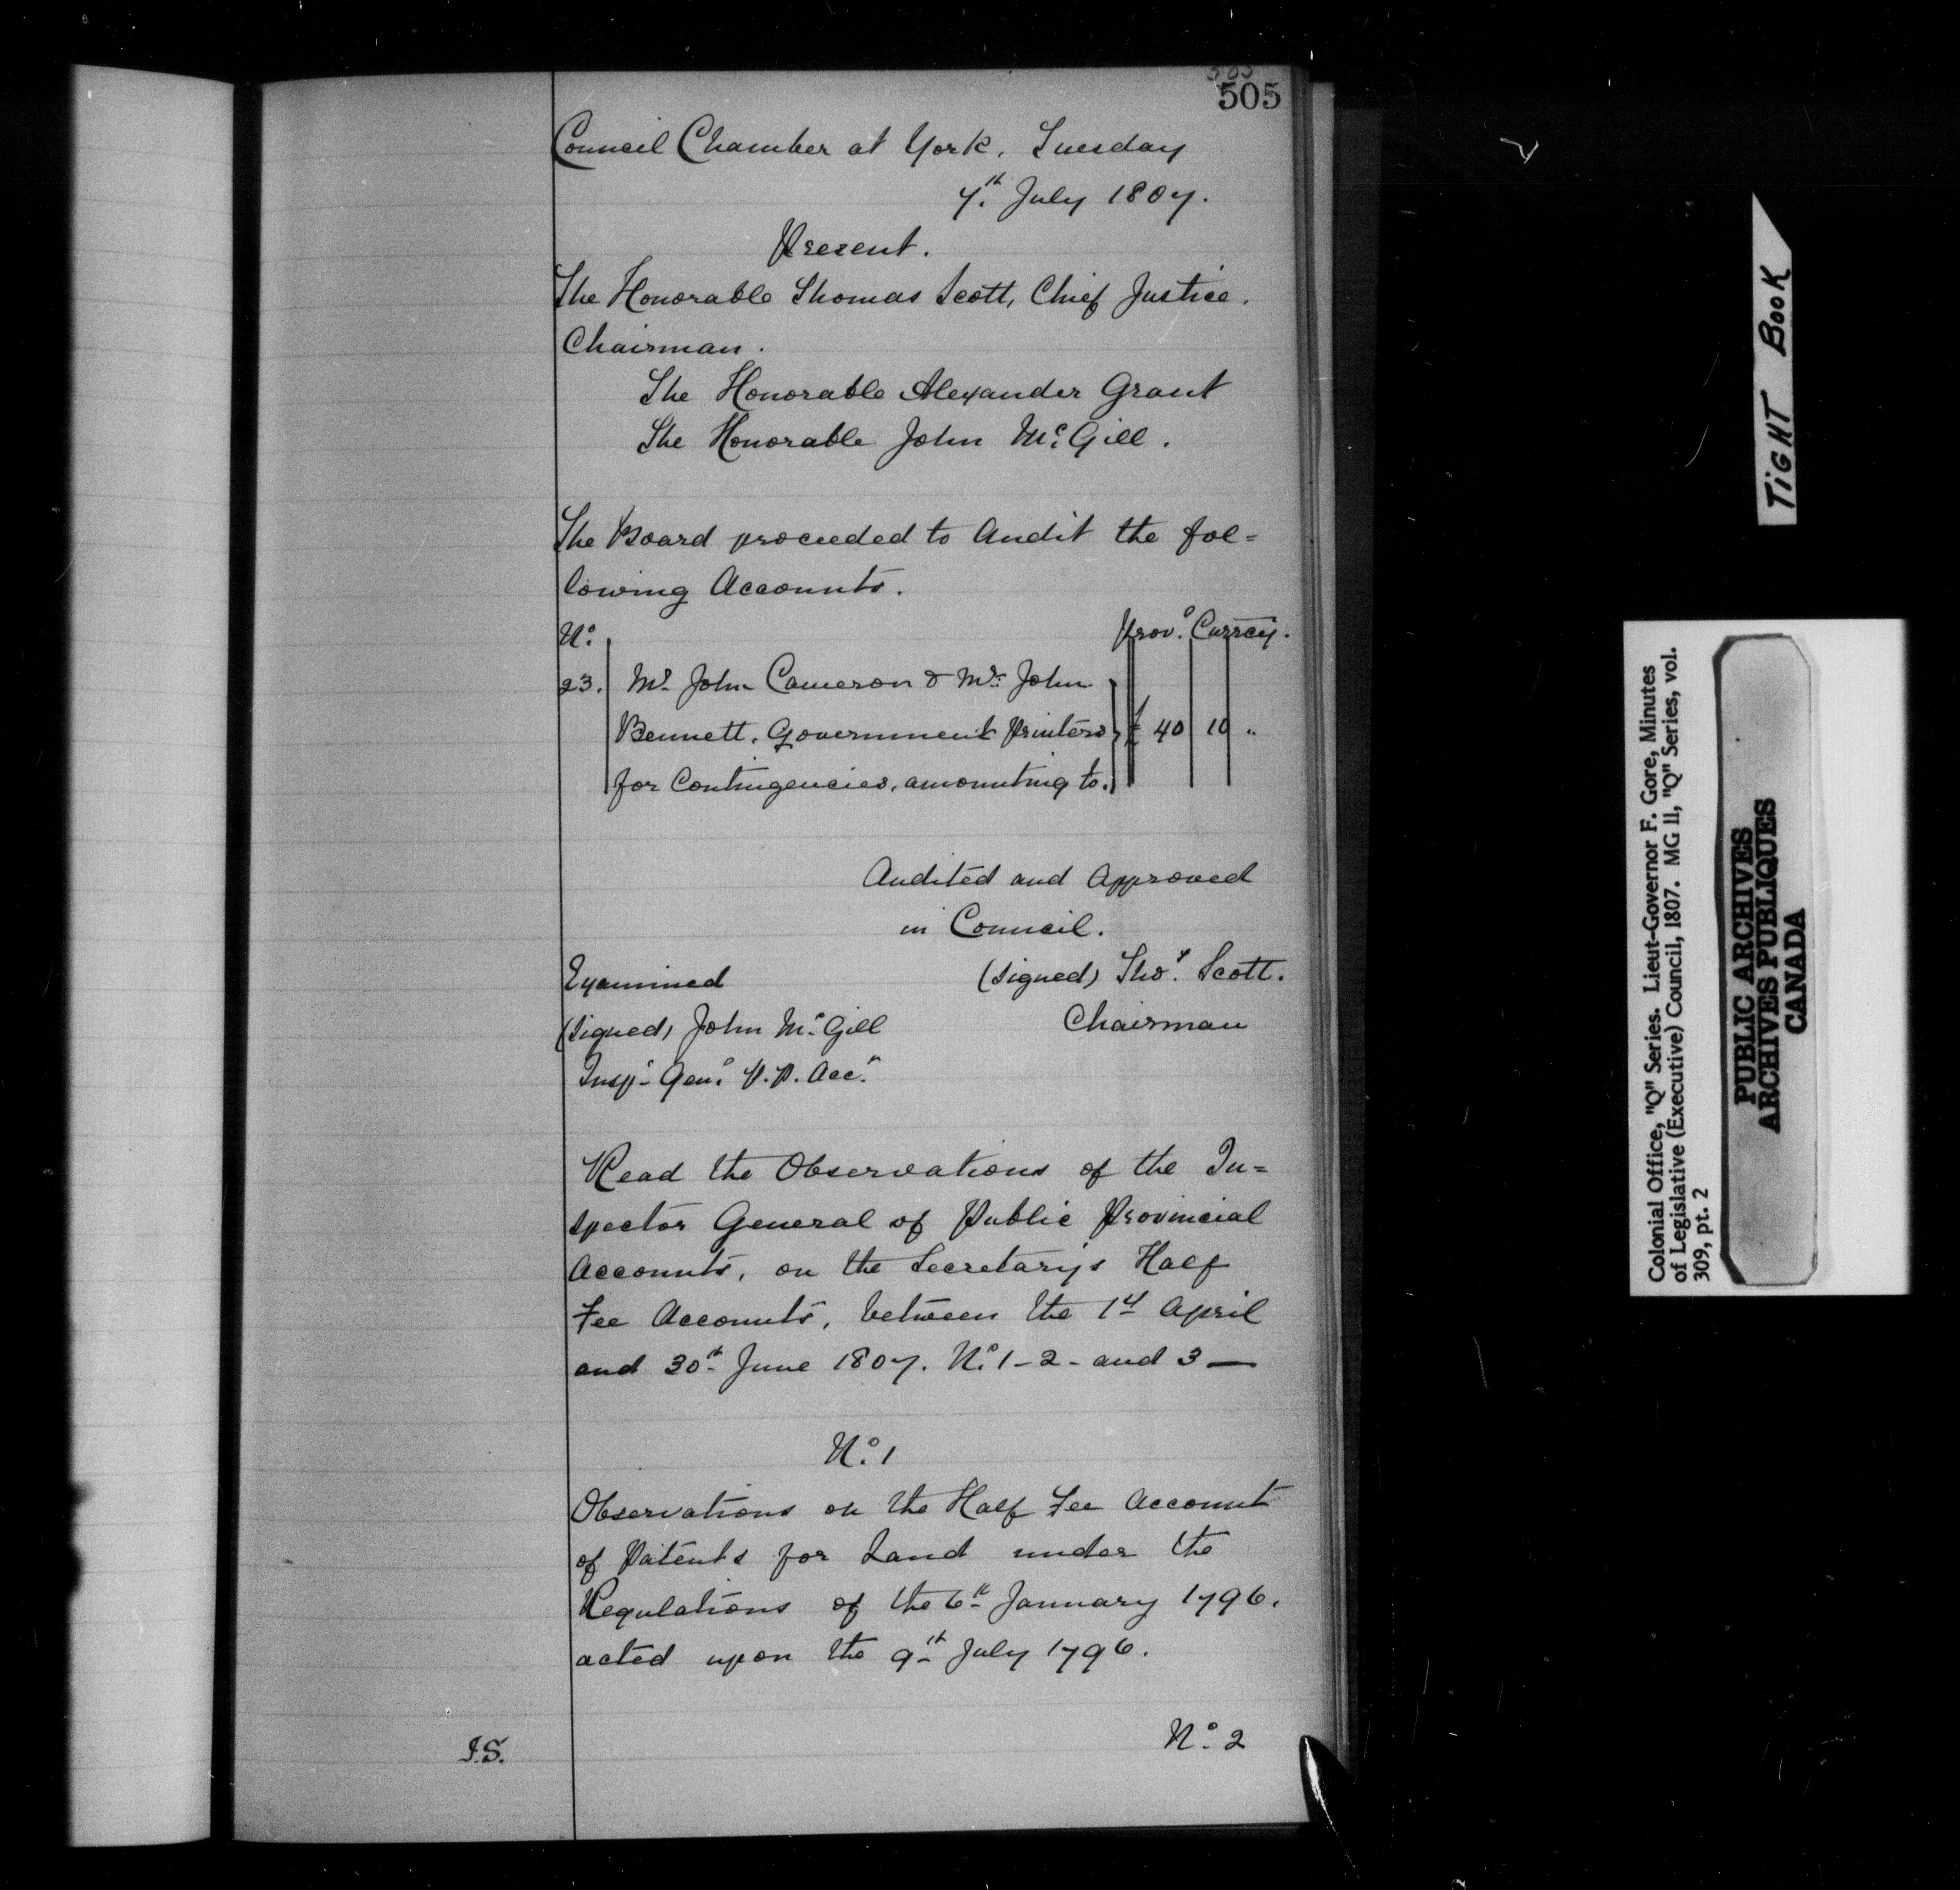 505
Council Chamber at York, Tuesday
7th July 1807.
Present.
The Honorable Thomas Scott, Chief Justice.
Chairman.
The Honorable Alexander Grant
The Honorable John McGill.
The Board proceeded to Audit the fol=
lowing Accounts.
No. Provl. Currcy.
23. Mr. John Cameron & Mr. John
Bennett, Government Printers £ 40 10 "
for Contingencies, amounting to.
Audited and Approved
in Council.
Examined (signed) Thos. Scott.
(signed) John McGill Chairman
Insp. Genl. P. P. Acc.ts
Read the Observations of the In=
spector General of Public Provincial
Accounts, on the Secretary's Half
Fee Accounts, between the 1st April
and 30th June 1807. No. 1-2- and 3—
No. 1
Observations on the Half Fee Account
of Patents for Land under the
Regulations of the 6th January 1796.
acted upon the 9th July 1796.
No. 2
J.S.
TIGHT BOOK
Colonial Office, "Q" Series. Lieut-Governor F. Gore, Minutes
of Legislative (Executive) Council, 1807. MG 11, "Q" Series, vol.
309, pt. 2
PUBLIC ARCHIVES
ARCHIVES PUBLIQUES
CANADA